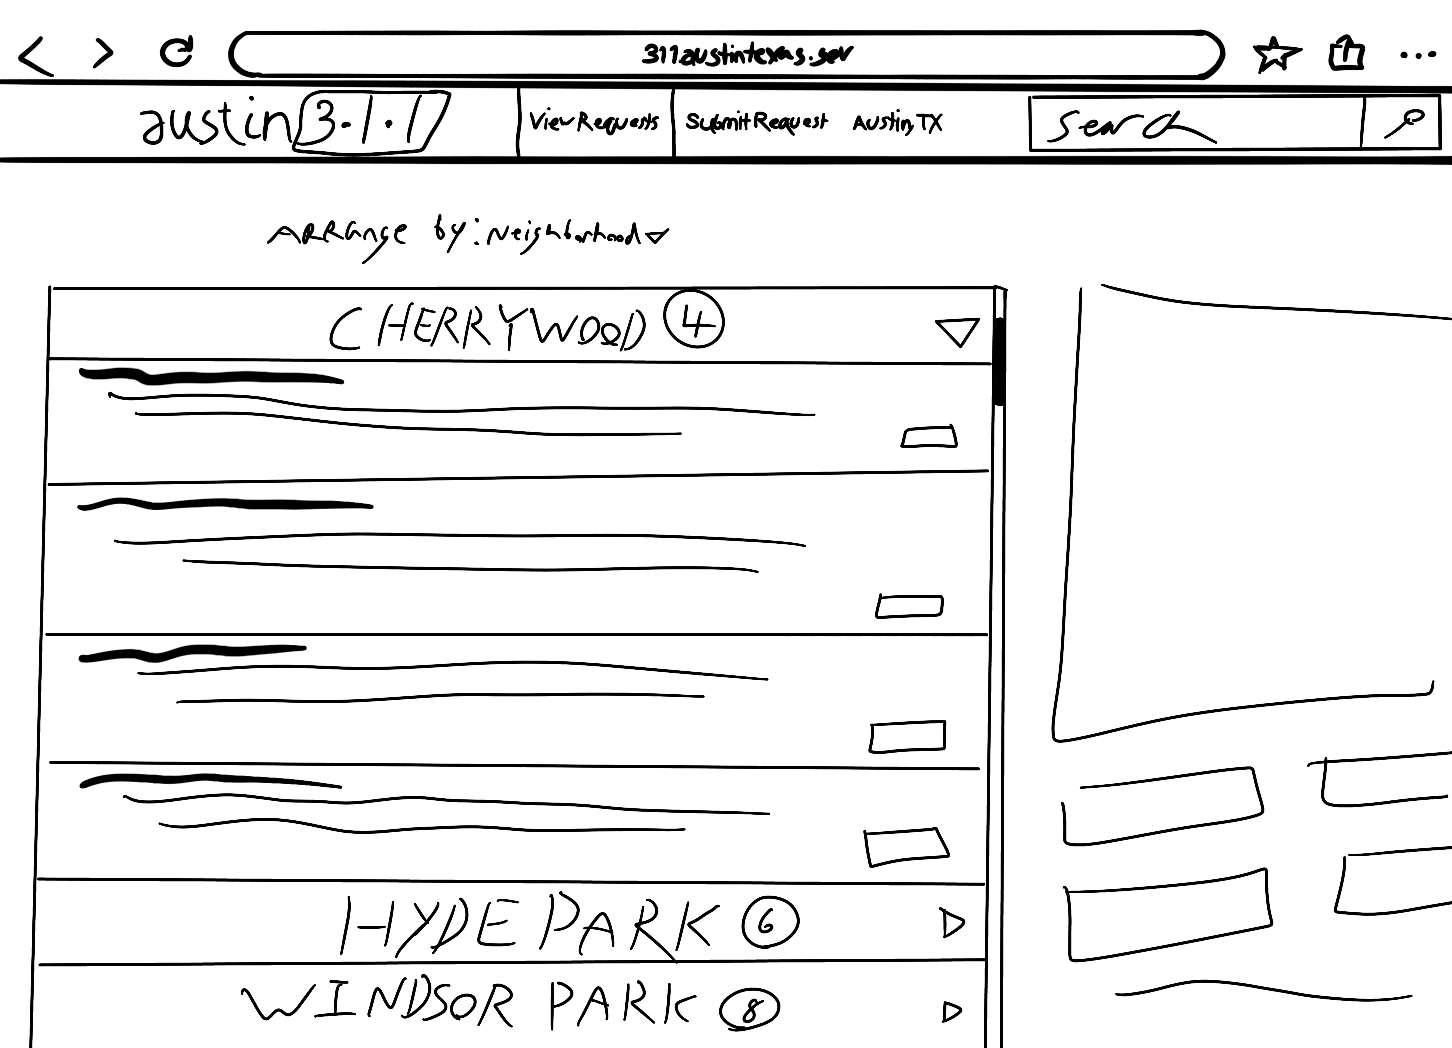 311.austintexas.gov
austin 3.1.1 View Requests Submit Request Austin, TX Search
ARRange by: Neighborhood
CHERRYWOOD 4
HYDE PARK 6
WINDSOR PARK 8